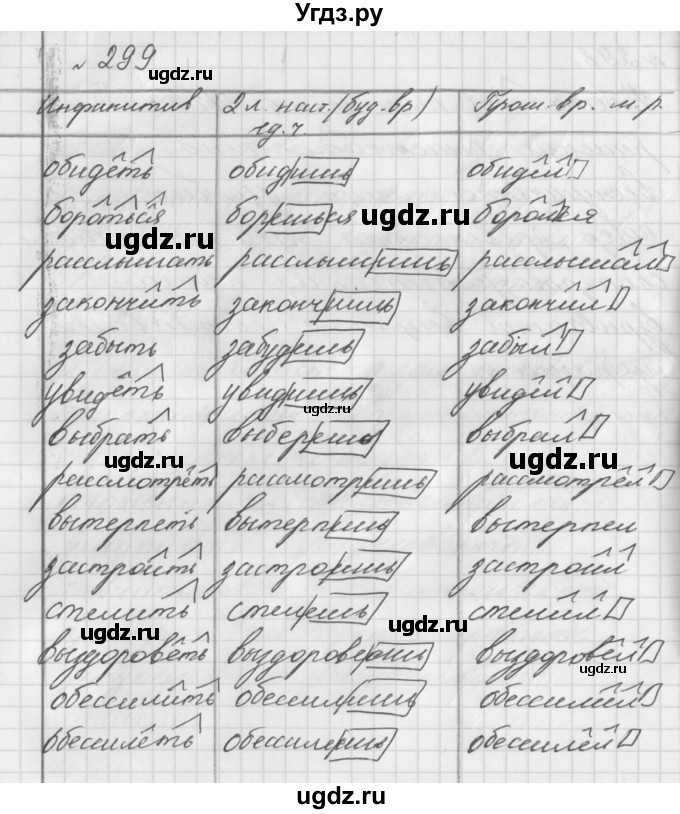 Угдз.ру
№ 299
ugdz.ru
Инфинитив 2 л. наст. (буд. вр) Прош. вр. м. р.
ед. ч
обидеть обидишь обидел
бороться борешься боролся
ugdz.ru ugdz.ru
расслышать расслышишь расслышал
ugdz.ru
закончить закончишь закончил
забыть забудешь забыл
ugdz.ru
увидеть увидишь увидел
ugdz.ru
выбрать выберешь выбрал
ugdz.ru ugdz.ru
рассмотреть рассмотришь рассмотрел
вытерпеть вытерпишь вытерпел
ugdz.ru
застроить застроишь застроил
стелить стелишь стелил
ugdz.ru ugdz.ru
выздороветь выздоровеешь выздоровел
обессилить обессилишь обессилил
ugdz.ru ugdz.ru
обессилеть обессилеешь обессилел
ugdz.ru
ugdz.ru